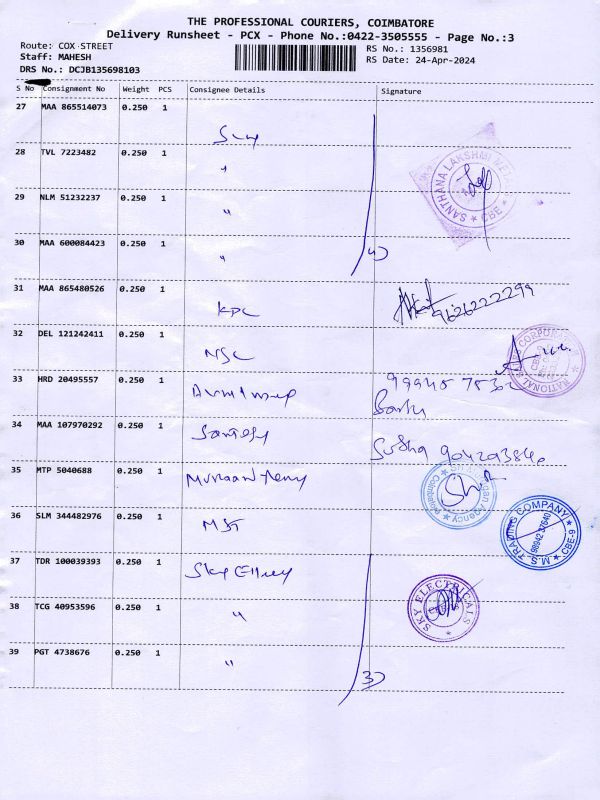 THE PROFESSIONAL COURIERS, COIMBATORE
Delivery Runsheet - PCX - Phone No.:0422-3505555 - Page No.:3
Route: COX STREET
Staff: MAHESH
DRS No.: DCJB135698103
RS No.: 1356981
RS Date: 24-Apr-2024
S No Consignment No Weight PCS Consignee Details Signature
27 MAA 865514073 0.250 1
28 TVL 7223482 0.250 1 "
SANTHANA LAKSHMI CBE
29 NLM 51232237 0.250 1 "
30 MAA 600084423 0.250 1 " 4)
31 MAA 865480526 0.250 1 KPC 9626222299
32 DEL 121242411 0.250 1 NSC
33 HRD 20495557 0.250 1
34 MAA 107970292 0.250 1 Santosh Subha
35 MTP 5040688 0.250 1 Murugan Agency
36 SLM 344482976 0.250 1 MST
M.S. TRADING COMPANY CBE-9
37 TDR 100039393 0.250 1 Sky
38 TCG 40953596 0.250 1 "
SKY ELECTRICALS
39 PGT 4738676 0.250 1 " 3)